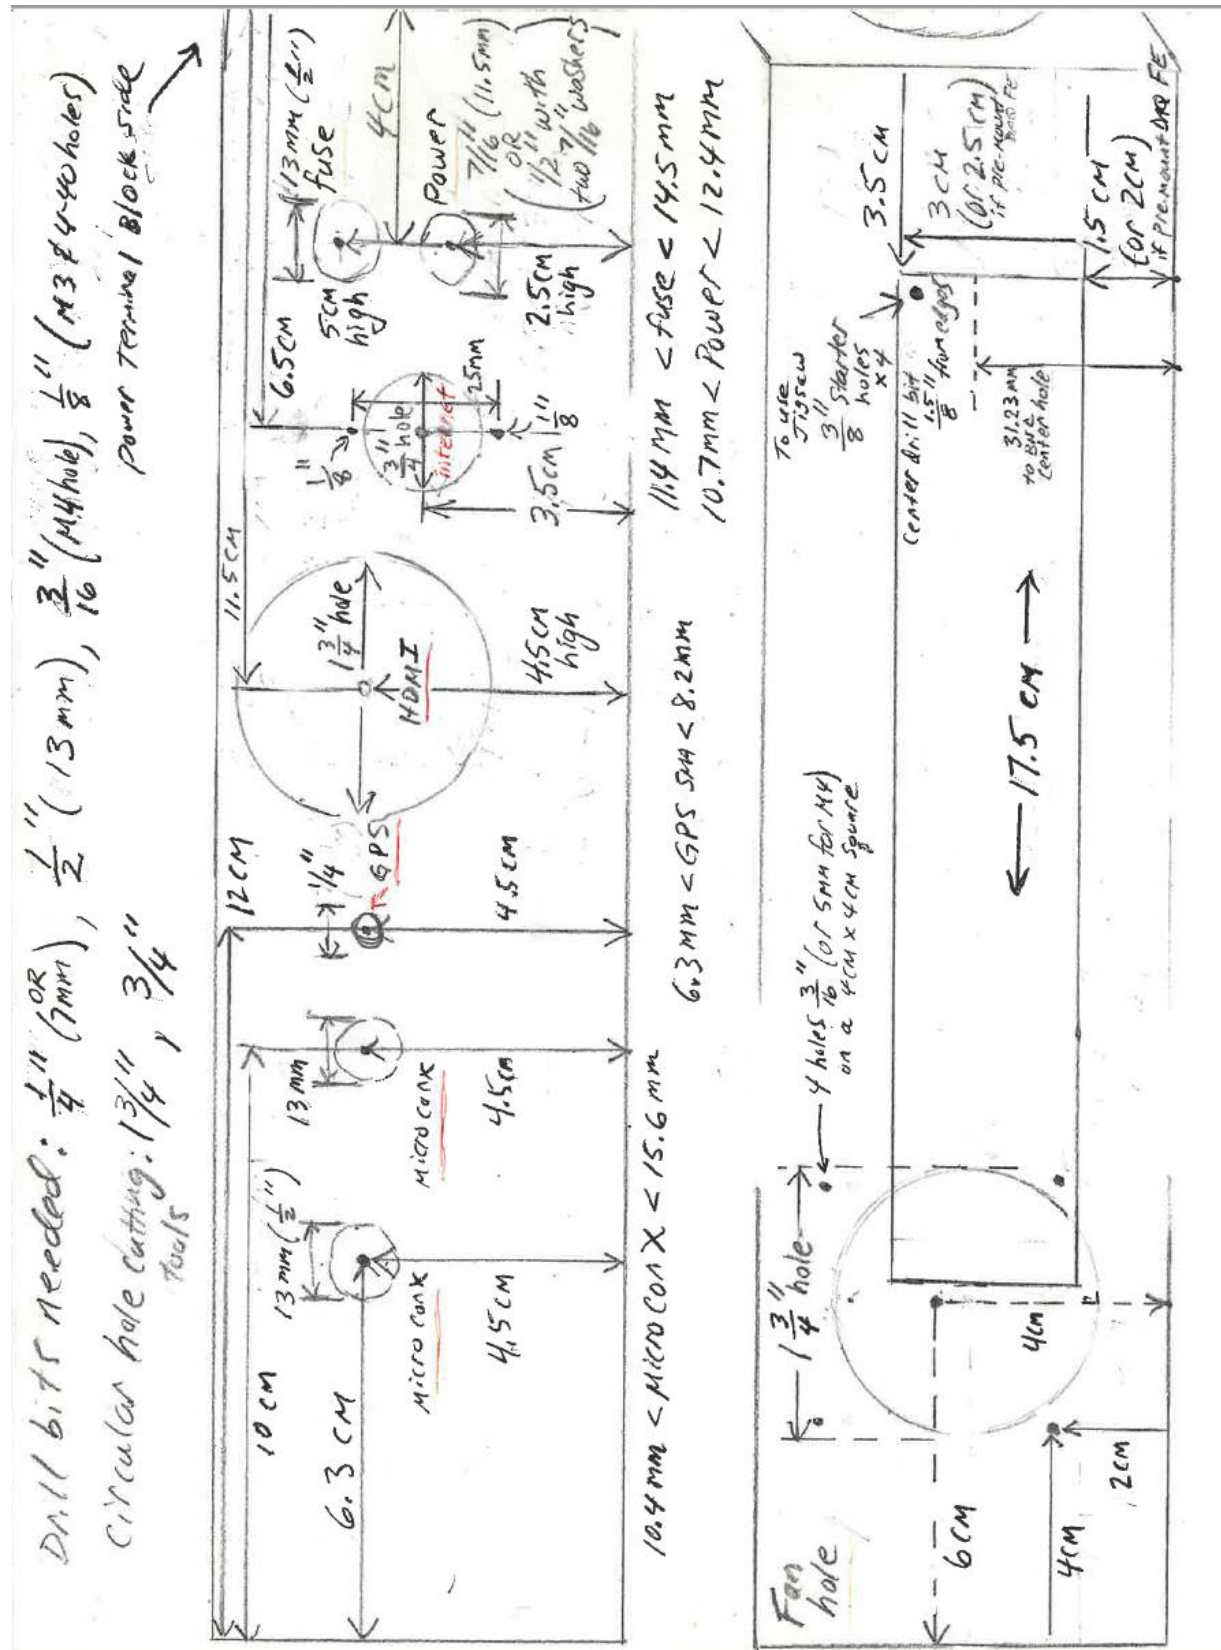 Drill bits needed: 1/4" OR (7mm), 1/2" (13mm), 3/16" (M4 hole), 1/8" (M3 & 4-40 holes)
Circular hole cutting: 1 3/4", 3/4"
tools
Power Terminal Block side
10 CM
12CM
11.5 CM
6.5CM
4CM
6.3 CM
13mm (1/2")
Microconx
4.5CM
13mm
Microconx
4.5CM
1/4"
GPS
4.5CM
1 3/4" hole
HDMI
4.5CM
high
1/8"
3/4" hole
internet
25mm
1/8"
3.5CM
13mm (1/2")
fuse
5CM
high
Power
7/16" (11.5mm)
OR
1/2" with
two 7/16" washers
2.5CM
high
10.4mm < MicroConX < 15.6mm
6.3mm < GPS SMA < 8.2mm
11.4mm < fuse < 14.5mm
10.7mm < Power < 12.4mm
Fan
hole
1 3/4" hole
4 holes 3/16" (or 5mm for M4)
on a 4cm x 4cm square
6CM
4CM
4CM
2CM
17.5 CM
To use
Jigsaw
3/8" starter
holes
x4
center drill bit
1.5"/8 from edges
31.23mm
to BNC
center hole
3.5CM
3CM
(or 2.5CM)
if pre-mount
1.5CM
(or 2CM)
if pre-mount DAQ FE